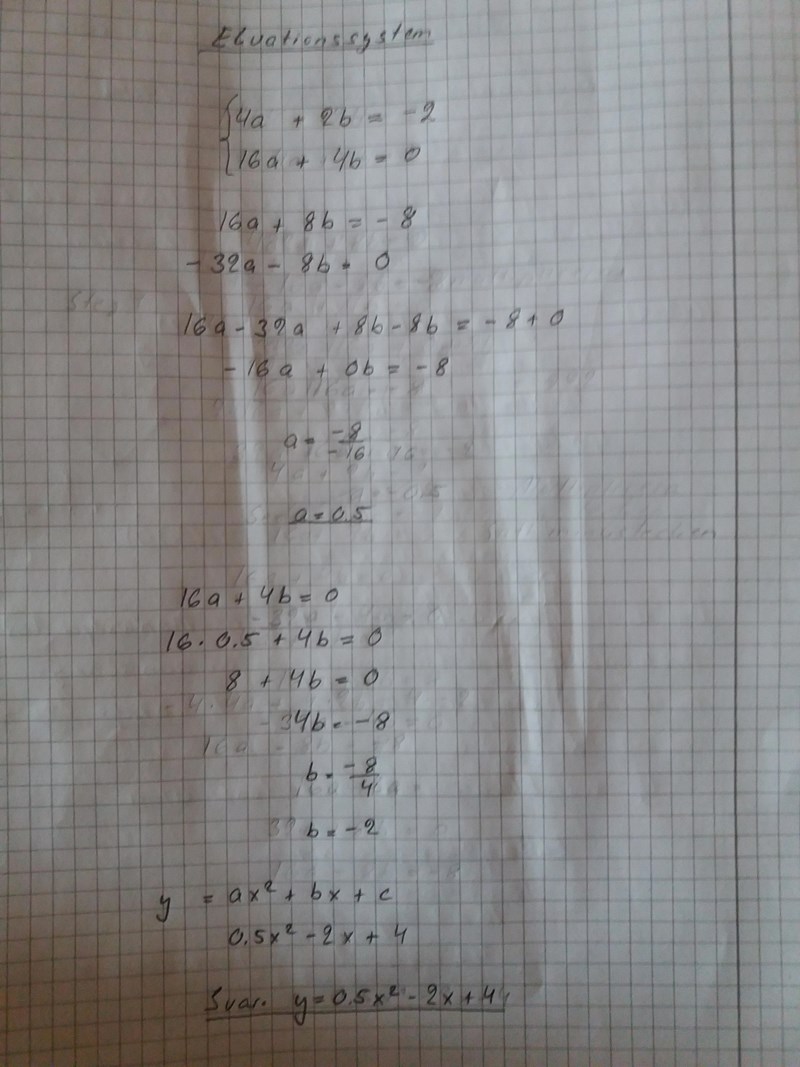 Ekvationssystem
4a + 2b = -2
16a + 4b = 0
16a + 8b = -8
-32a - 8b = 0
16a - 32a + 8b - 8b = -8 + 0
-16a + 0b = -8
a = -8/-16
a = 0.5
16a + 4b = 0
16 · 0.5 + 4b = 0
8 + 4b = 0
4b = -8
b = -8/4
b = -2
y = ax² + bx + c
0.5x² - 2x + 4
Svar. y = 0.5x² - 2x + 4